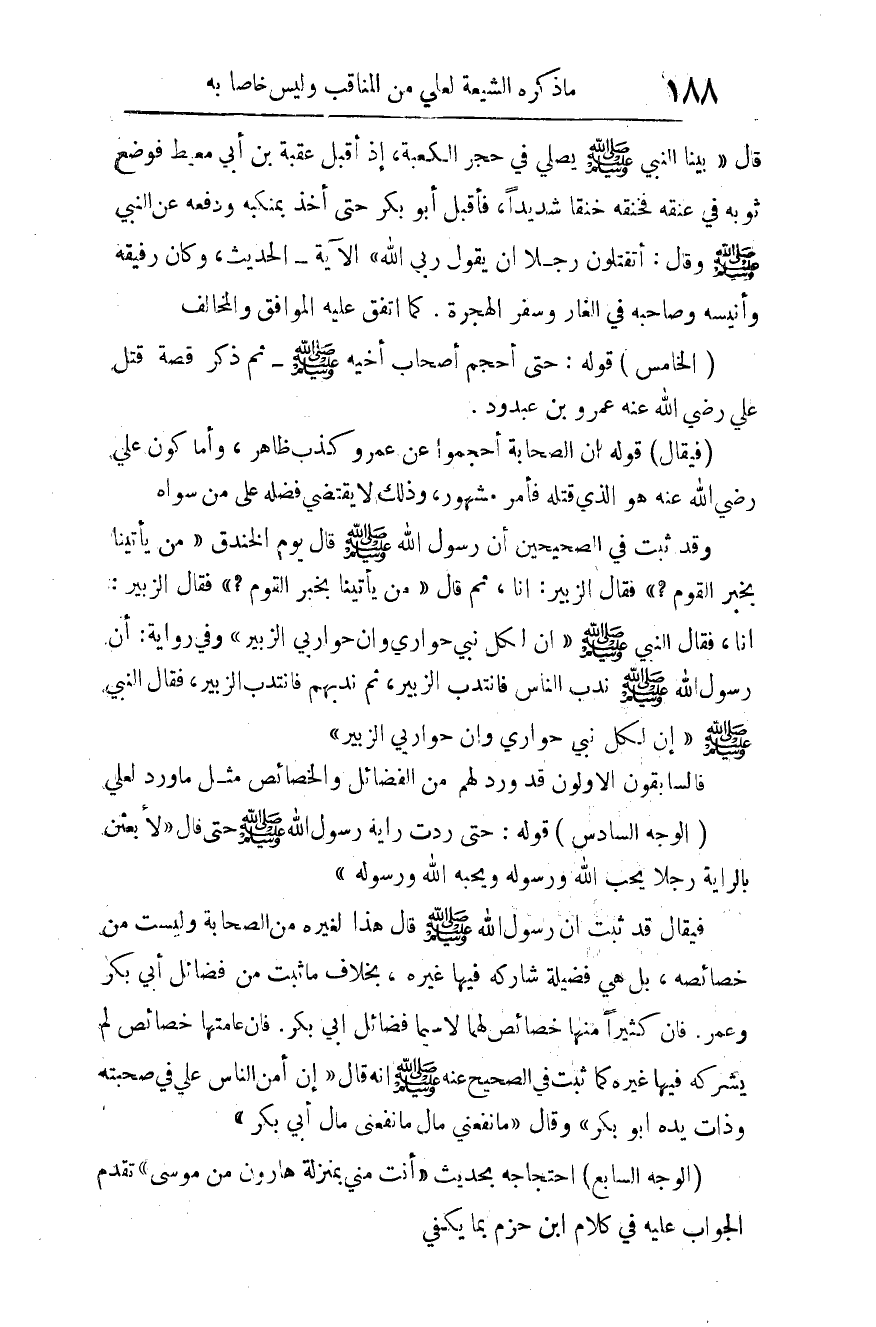 ١٨٨ ماذكره الشيعة لعلي من المناقب وليس خاصا به
قال « بينا النبي ﷺ يصلي في حجر الكعبة، إذ أقبل عقبة بن أبي معيط فوضع
ثوبه في عنقه فخنقه خنقا شديداً، فأقبل أبو بكر حتى أخذ بمنكبه ودفعه عن النبي
ﷺ وقال : أتقتلون رجلا ان يقول ربي الله» الآية ــ الحديث، وكان رفيقه
وأنيسه وصاحبه في الغار وسفر الهجرة . كما اتفق عليه الموافق والمخالف
( الخامس ) قوله : حتى أحجم أصحاب أخيه ﷺ ــ ثم ذكر قصة قتل
علي رضي الله عنه عمرو بن عبدود .
(فيقال) قوله ان الصحابة أحجموا عن عمرو كذب ظاهر ، وأما كون علي
رضي الله عنه هو الذي قتله فأمر مشهور، وذلك لا يقتضي فضله على من سواه
وقد ثبت في الصحيحين أن رسول الله ﷺ قال يوم الخندق « من يأتينا
بخبر القوم ؟» فقال الزبير : انا ، ثم قال « من يأتينا بخبر القوم ؟» فقال الزبير :
انا ، فقال النبي ﷺ « ان لكل نبي حواري وان حواريي الزبير» وفي رواية : أن
رسول الله ﷺ ندب الناس فانتدب الزبير، ثم ندبهم فانتدب الزبير، فقال النبي
ﷺ « إن لكل نبي حواري وان حواريي الزبير»
فالسابقون الاولون قد ورد لهم من الفضائل والخصائص مثل ماورد لعلي
( الوجه السادس ) قوله : حتى ردت راية رسول الله ﷺ حتى قال «لأبعثن
بالراية رجلا يحب الله ورسوله ويحبه الله ورسوله »
فيقال قد ثبت ان رسول الله ﷺ قال هذا لغيره من الصحابة وليست من
خصائصه ، بل هي فضيلة شاركه فيها غيره ، بخلاف ماثبت من فضائل أبي بكر
وعمر . فان كثيراً منها خصائص لهما لاسيما فضائل ابي بكر . فان عامتها خصائص لم
يشركه فيها غيره كما ثبت في الصحيح عنه ﷺ انه قال « إن أمن الناس علي في صحبته
وذات يده ابو بكر» وقال «مانفعني مال مانفعنى مال أبي بكر »
(الوجه السابع) احتجاجه بحديث «أنت مني بمنزلة هارون من موسى» تقدم
الجواب عليه في كلام ابن حزم بما يكفي